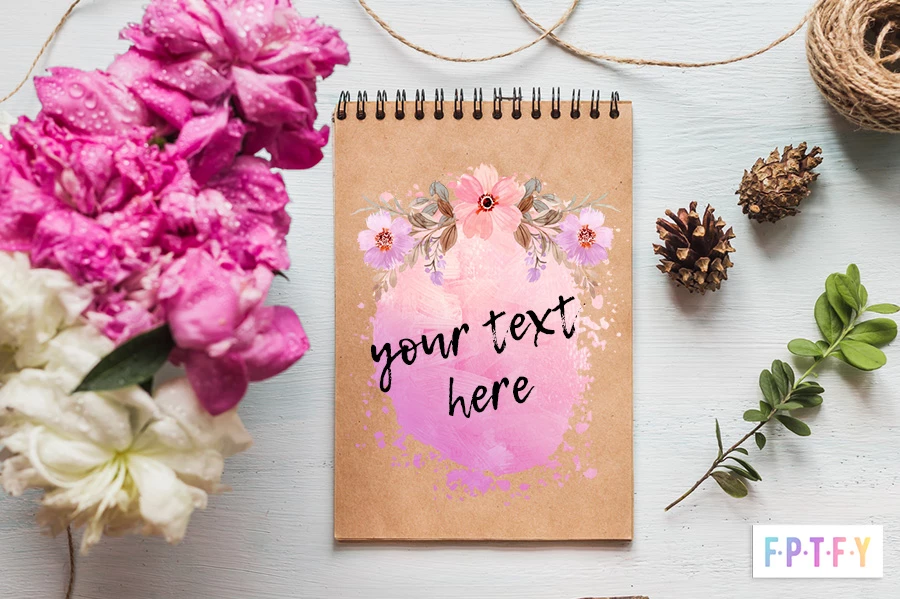 your text
here
F·P·T·F·Y